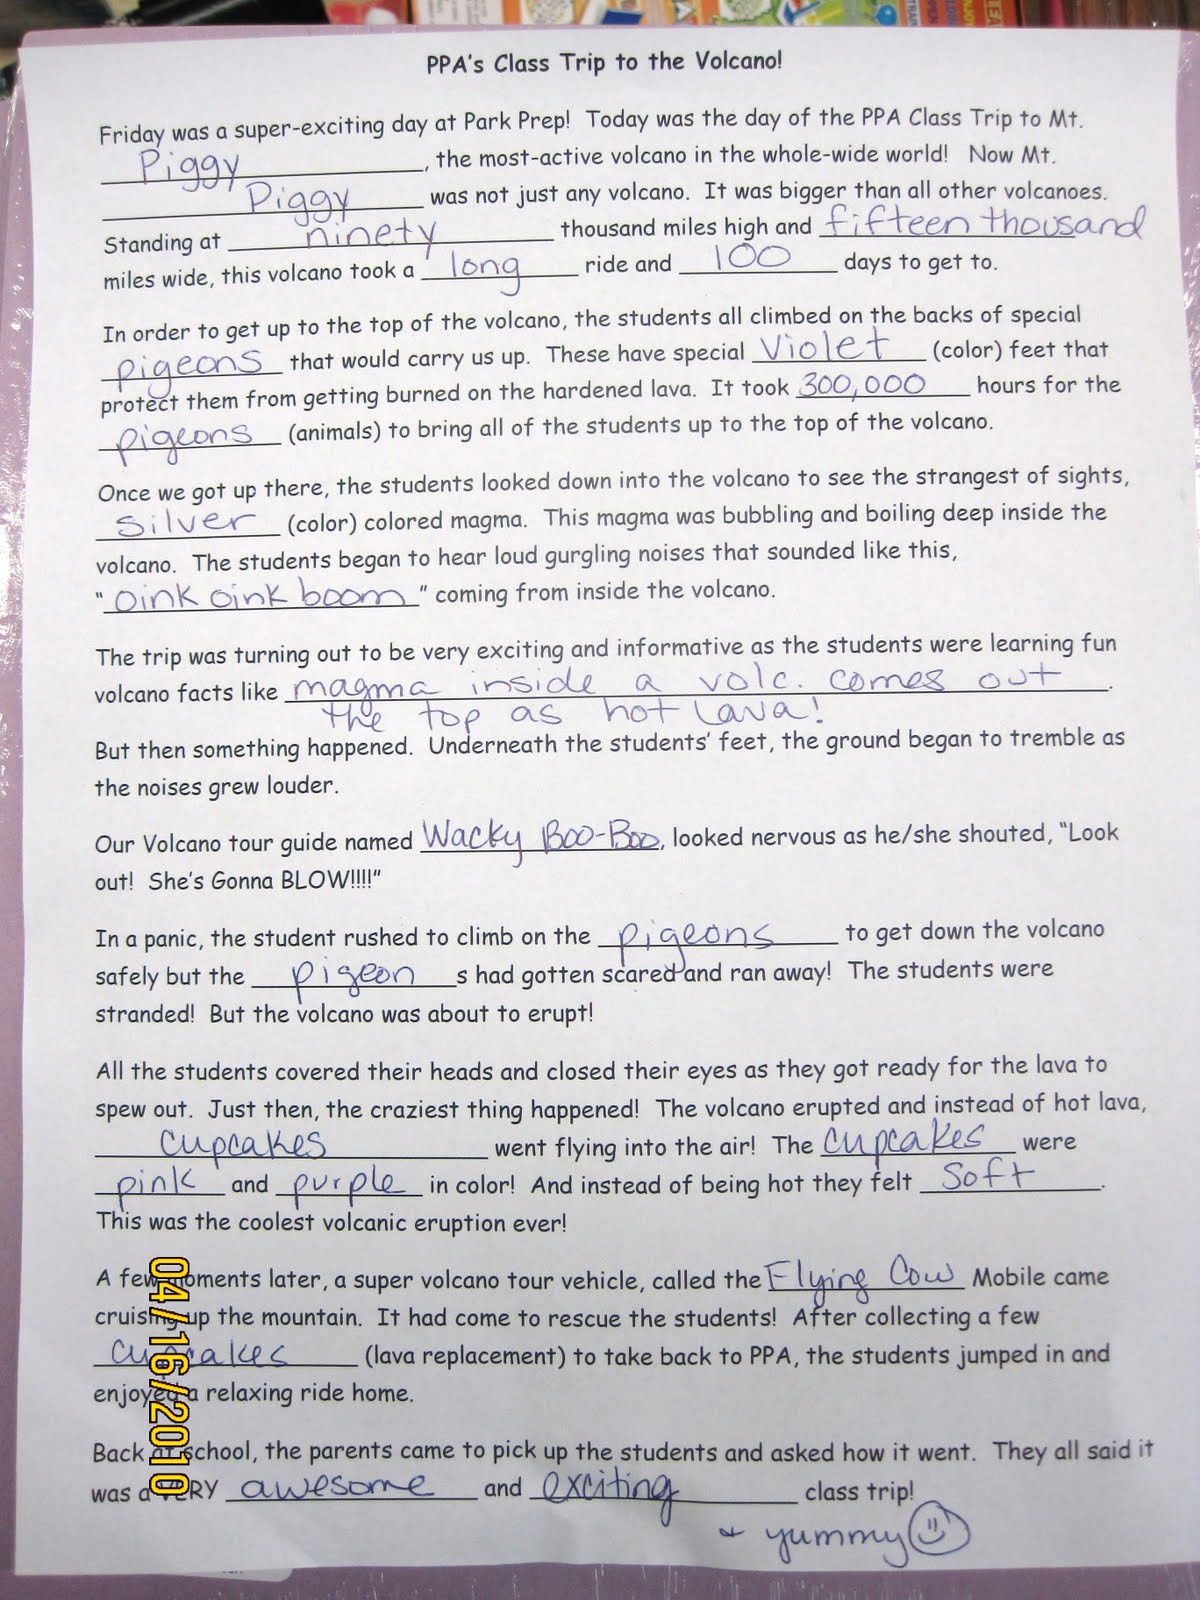 PPA's Class Trip to the Volcano!
Friday was a super-exciting day at Park Prep! Today was the day of the PPA Class Trip to Mt.
Piggy, the most-active volcano in the whole-wide world! Now Mt.
Piggy was not just any volcano. It was bigger than all other volcanoes.
Standing at ninety thousand miles high and fifteen thousand
miles wide, this volcano took a long ride and 100 days to get to.
In order to get up to the top of the volcano, the students all climbed on the backs of special
pigeons that would carry us up. These have special violet (color) feet that
protect them from getting burned on the hardened lava. It took 300,000 hours for the
pigeons (animals) to bring all of the students up to the top of the volcano.
Once we got up there, the students looked down into the volcano to see the strangest of sights,
silver (color) colored magma. This magma was bubbling and boiling deep inside the
volcano. The students began to hear loud gurgling noises that sounded like this,
"oink oink boom" coming from inside the volcano.
The trip was turning out to be very exciting and informative as the students were learning fun
volcano facts like magma inside a volc. comes out.
the top as hot lava!
But then something happened. Underneath the students' feet, the ground began to tremble as
the noises grew louder.
Our Volcano tour guide named Wacky Boo-Boo, looked nervous as he/she shouted, "Look
out! She's Gonna BLOW!!!!"
In a panic, the student rushed to climb on the pigeons to get down the volcano
safely but the pigeon s had gotten scared and ran away! The students were
stranded! But the volcano was about to erupt!
All the students covered their heads and closed their eyes as they got ready for the lava to
spew out. Just then, the craziest thing happened! The volcano erupted and instead of hot lava,
cupcakes went flying into the air! The cupcakes were
pink and purple in color! And instead of being hot they felt soft.
This was the coolest volcanic eruption ever!
A few moments later, a super volcano tour vehicle, called the Flying Cow Mobile came
cruising up the mountain. It had come to rescue the students! After collecting a few
cupcakes (lava replacement) to take back to PPA, the students jumped in and
enjoyed a relaxing ride home.
Back at school, the parents came to pick up the students and asked how it went. They all said it
was a VERY awesome and exciting class trip!
+ yummy
04/16/2010